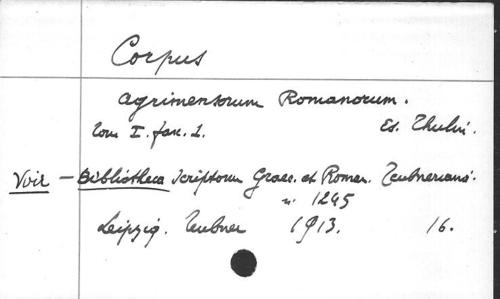 Corpus
agrimensorum Romanorum.
Tom I. fasc. 1. Ed. Thulin.
Voir – Bibliotheca scriptorum Graec. et Roman. Teubneriana.
n° 1245
Leipzig. Teubner 1913. 16.